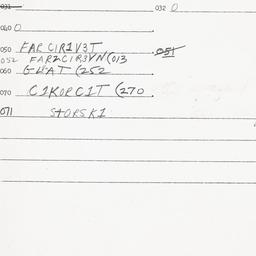 031 032 0
040 0
050 FARCIR1V3T 051
052 FARZCIR3VN(013
060 GWAT (252
070 C1KORC1T (270
071 STORSK1